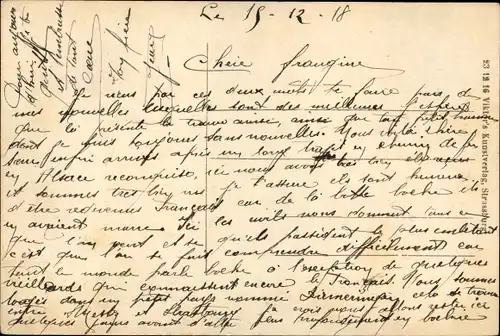 Le 15-12-18
Chère frangine
Je viens par ces deux mots te faire part de
mes nouvelles lesquelles sont des meilleures j'espère
que la présente te trouve ainsi que ton petit homme
dont je suis toujours sans nouvelles. Nous voilà chère
sœur enfin arrivés après un long trajet en chemin de fer
en Alsace reconquise, ici nous avons été très bien
et sommes très bien vus je t'assure ils sont heureux
d'être redevenus Français car de la bête boche ils
en avaient marre. Ici les civils nous donnent tous ce
que l'on veut et ce qu'ils possèdent le plus embêtant
c'est que l'on se fait comprendre difficilement car
tout le monde parle boche à l'exception de quelques
vieillards qui connaissent encore le Français. Nous sommes
logés dans un petit pays nommé
entre Metz et Strasbourg nous allons rester ici
quelques jours avant d'aller plus
ton frère
23 12 16 Viktor's Kunstverlag, Strassburg